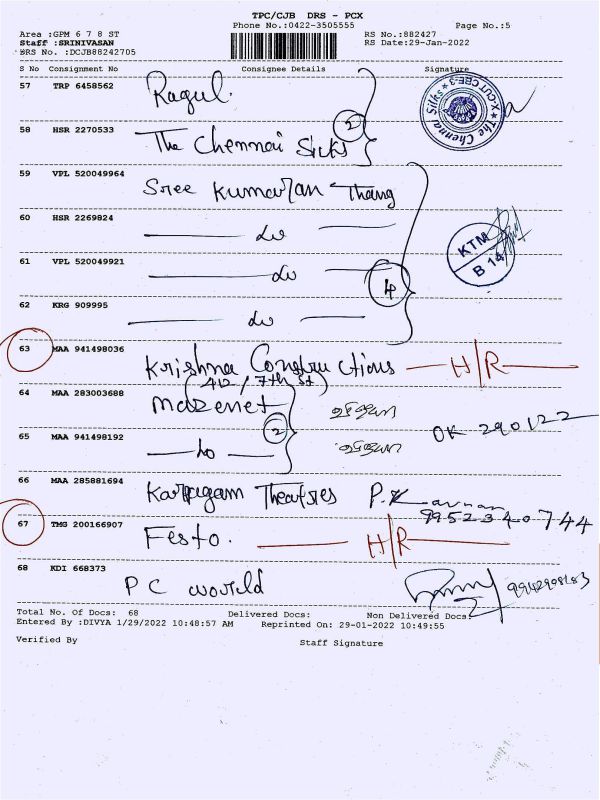 TPC/CJB DRS - PCX
Phone No.:0422-3505555 Page No.:5
Area :GPM 6 7 8 ST RS No.:882427
Staff :SRINIVASAN RS Date:29-Jan-2022
DRS No. :DCJB88242705
S No Consignment No Consignee Details Signature
57 TRP 6458562 Ragul.
58 HSR 2270533 The Chennai Silks
2
The Chennai Silks X-CUT CBE-3
59 VPL 520049964 Sree Kumaran Thang
60 HSR 2269824 do
61 VPL 520049921 do
4
KTM B 14
62 KRG 909995 do
63 MAA 941498036 Krishna Constructions H/R
(412, 7th st)
64 MAA 283003688 Mazenet
2
OK 290122
65 MAA 941498192 do
66 MAA 285881694 Karpagam Theatres
9952340744
67 TMG 200166907 Festo. H/R
68 KDI 668373 PC world
Total No. of Docs: 68 Delivered Docs: Non Delivered Docs:
Entered By :DIVYA 1/29/2022 10:48:57 AM Reprinted On: 29-01-2022 10:49:55
Verified By Staff Signature